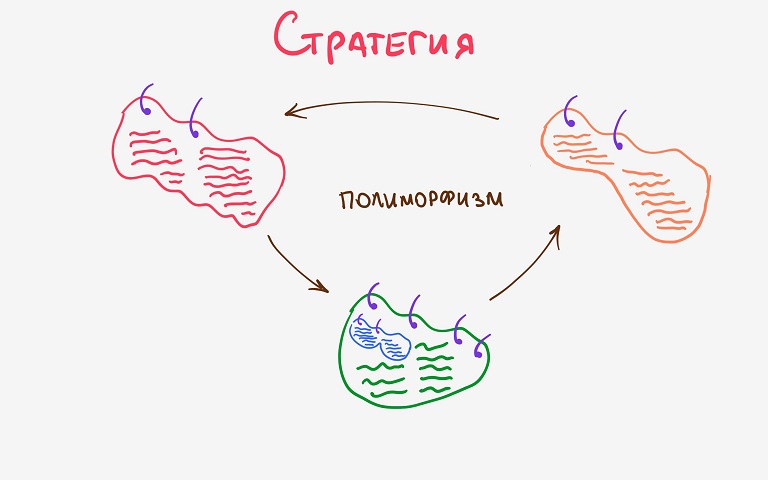 Стратегия
ПОЛИМОРФИЗМ